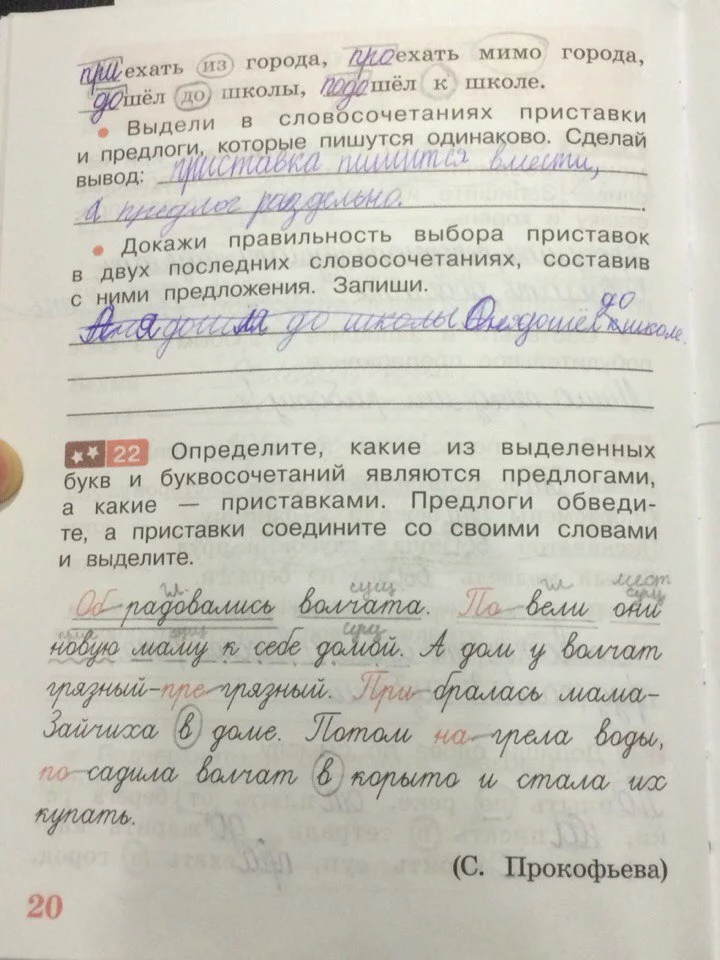 приехать из города, проехать мимо города,
дошёл до школы, подошёл к школе.
• Выдели в словосочетаниях приставки
и предлоги, которые пишутся одинаково. Сделай
вывод: приставка пишится вмести,
а предлог раздельно.
• Докажи правильность выбора приставок
в двух последних словосочетаниях, составив
с ними предложения. Запиши.
дошла до школы дошёл до школе.
22 Определите, какие из выделенных
букв и буквосочетаний являются предлогами,
а какие — приставками. Предлоги обведи-
те, а приставки соедините со своими словами
и выделите.
гл. сущ гл мест
сущ
Об радовались волчата. По вели они
сущ
новую маму к себе домой. А дом у волчат
грязный-пре грязный. При бралась мама-
Зайчиха в доме. Потом на грела воды,
по садила волчат в корыто и стала их
купать.
(С. Прокофьева)
20